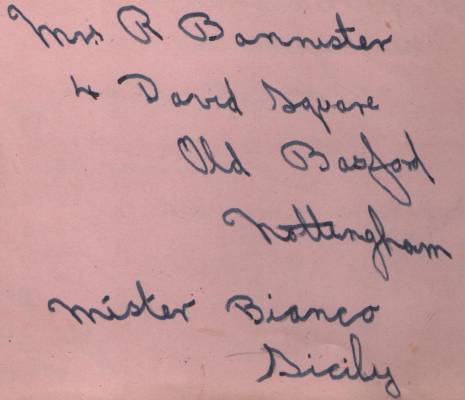 Mrs R Bannister
4 David Square
Old Basford
Nottingham
Mister Bianco
Sicily